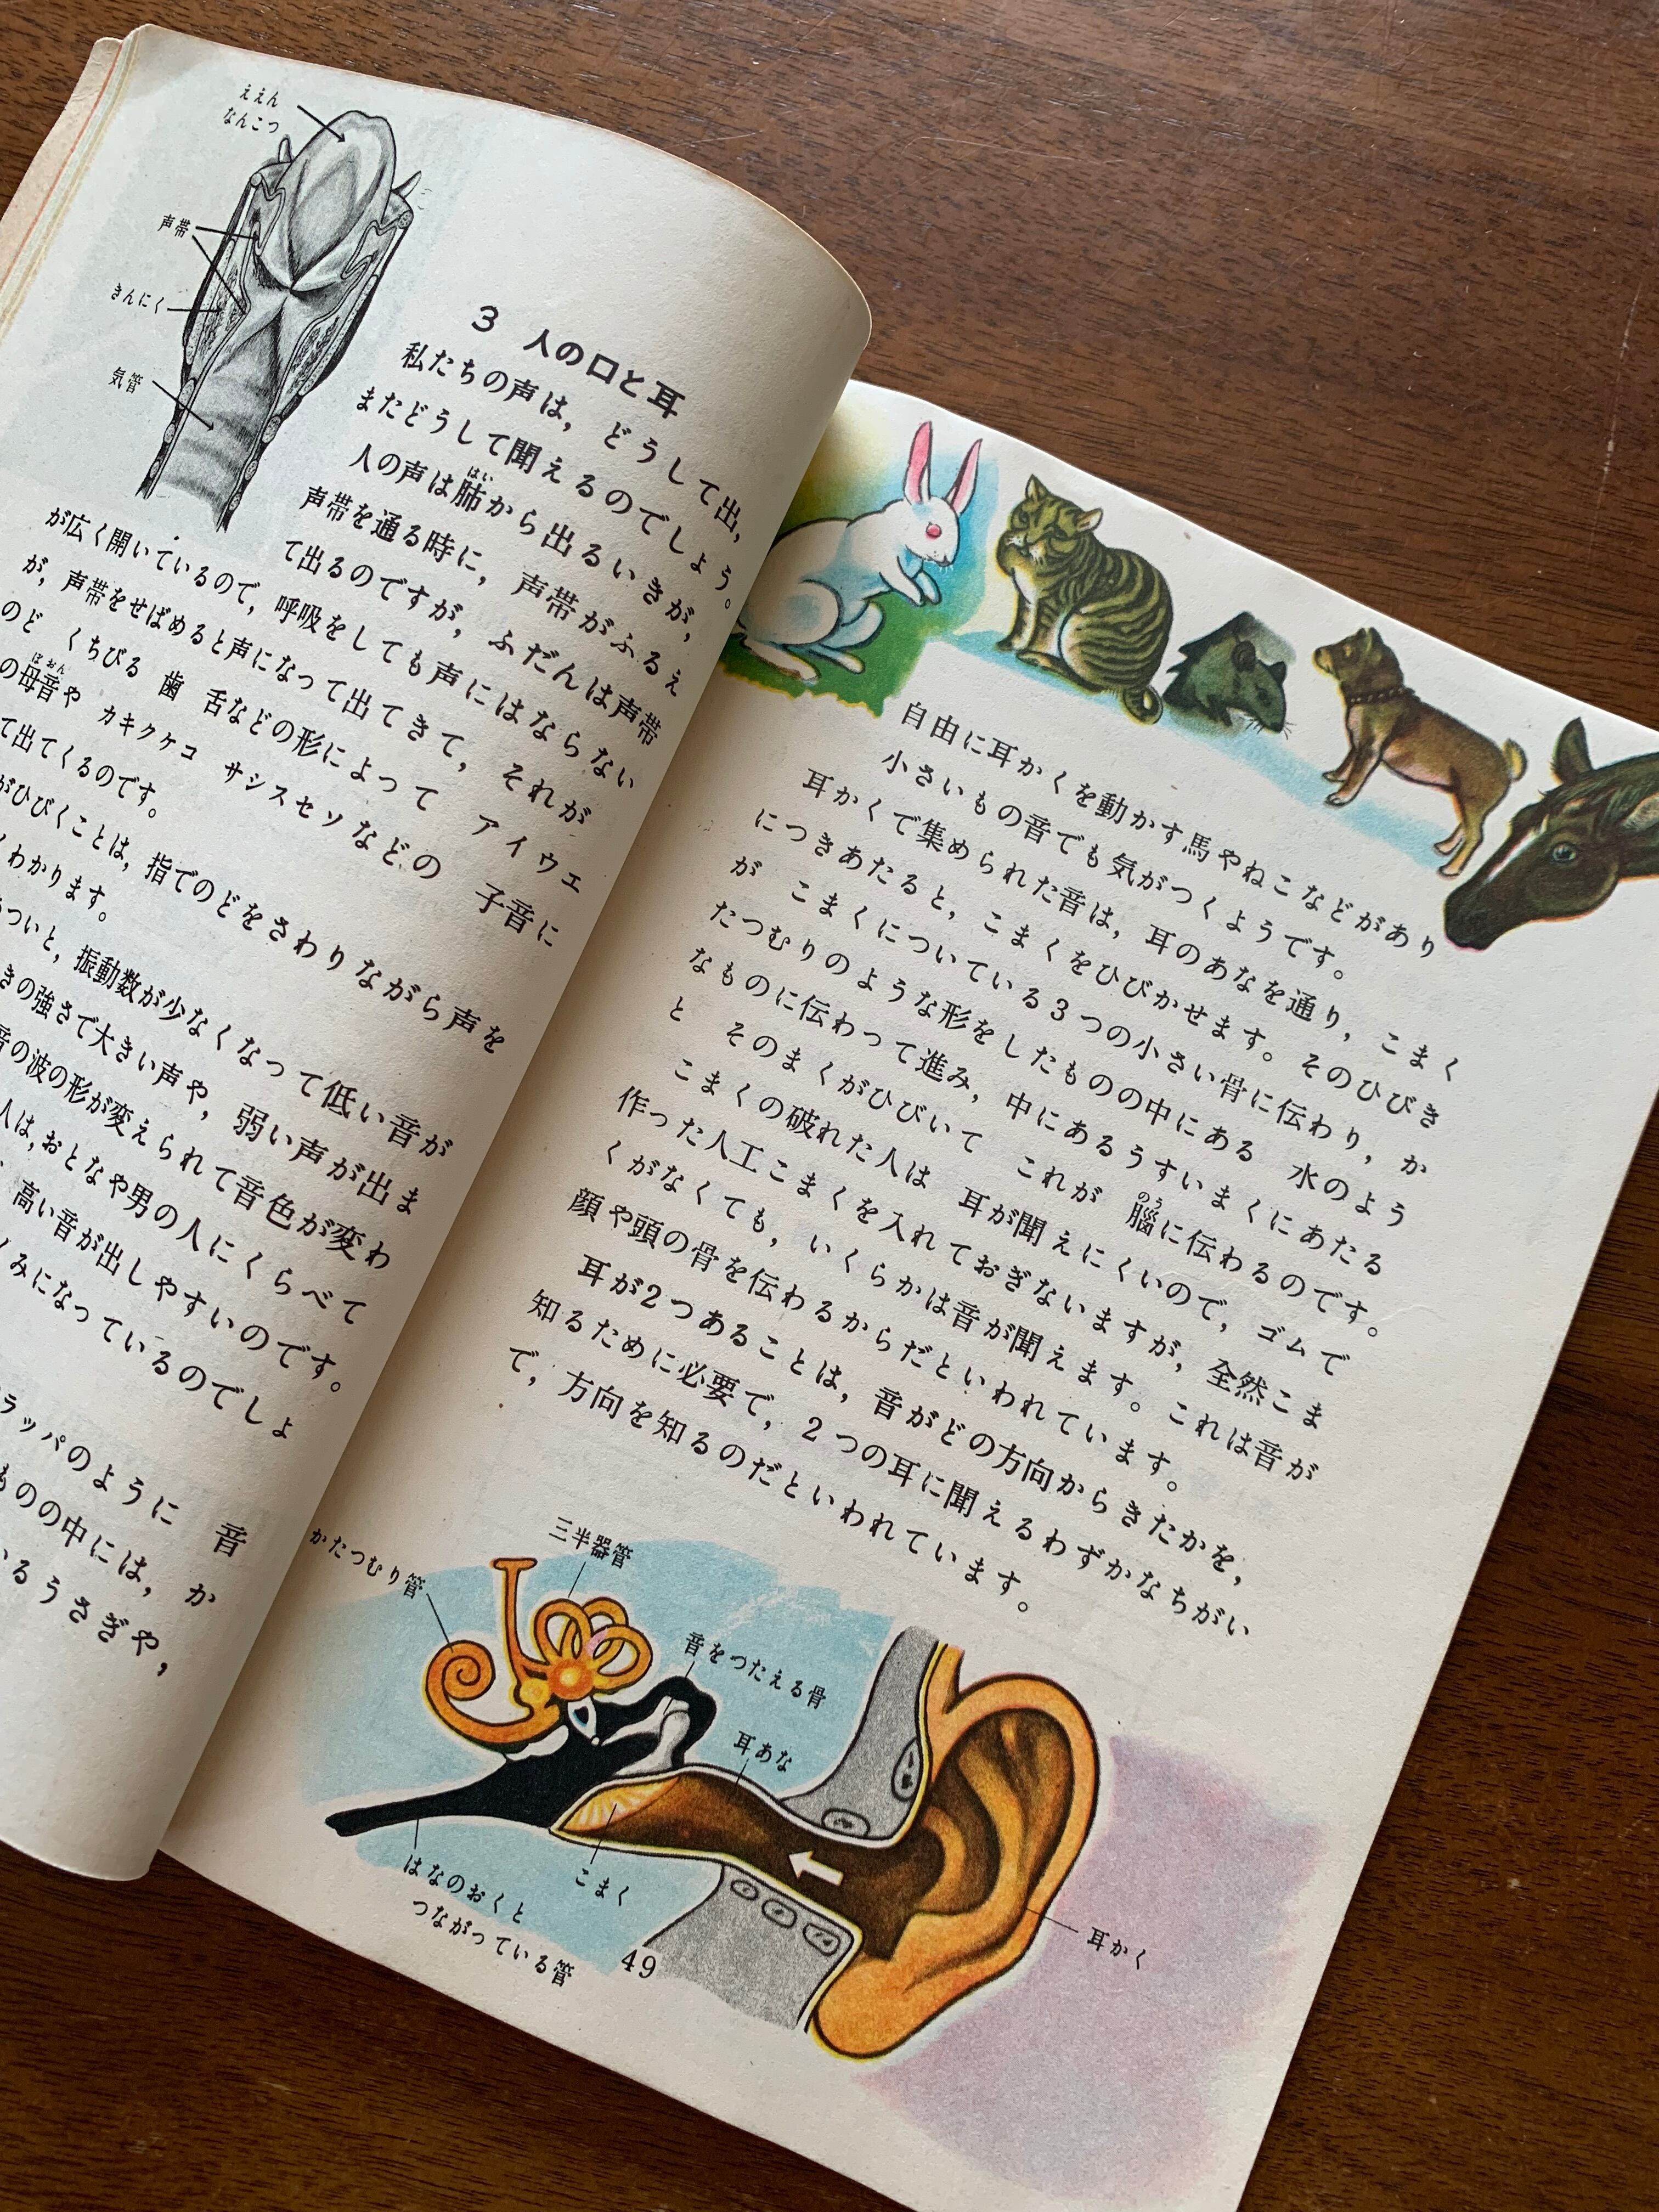 ええん
なんこつ
声帯
きんにく
気管
3 人の口と耳
私たちの声は，どうして出，
またどうして聞えるのでしょう。
人の声は肺から出るいきが，
はい
声帯を通る時に，声帯がふるえ
て出るのですが，ふだんは声帯
が広く開いているので，呼吸をしても声にはならない
が，声帯をせばめると声になって出てきて，それが
のど くちびる 歯 舌などの形によって アイウエ
の母音や カキクケコ サシスセソなどの 子音に
ぼおん
て出てくるのです。
がひびくことは，指でのどをさわりながら声を
わかります。
ついと，振動数が少なくなって低い音が
きの強さで大きい声や，弱い声が出ま
音の波の形が変えられて音色が変わ
人は，おとなや男の人にくらべて
高い音が出しやすいのです。
みになっているのでしょ
ラッパのように 音
ものの中には，か
いるうさぎや，
自由に耳かくを動かす馬やねこなどがあり
小さいもの音でも気がつくようです。
耳かくで集められた音は，耳のあなを通り，こまく
につきあたると，こまくをひびかせます。そのひびき
が こまくについている3つの小さい骨に伝わり，か
たつむりのような形をしたものの中にある 水のよう
なものに伝わって進み，中にあるうすいまくにあたる
と そのまくがひびいて これが 脳に伝わるのです。
のう
こまくの破れた人は 耳が聞えにくいので，ゴムで
作った人工こまくを入れておぎないますが，全然こま
くがなくても，いくらかは音が聞えます。これは音が
顔や頭の骨を伝わるからだといわれています。
耳が2つあることは，音がどの方向からきたかを，
知るために必要で，2つの耳に聞えるわずかなちがい
で，方向を知るのだといわれています。
かたつむり管
三半器管
音をつたえる骨
耳あな
こまく
はなのおくと
つながっている管
耳かく
49